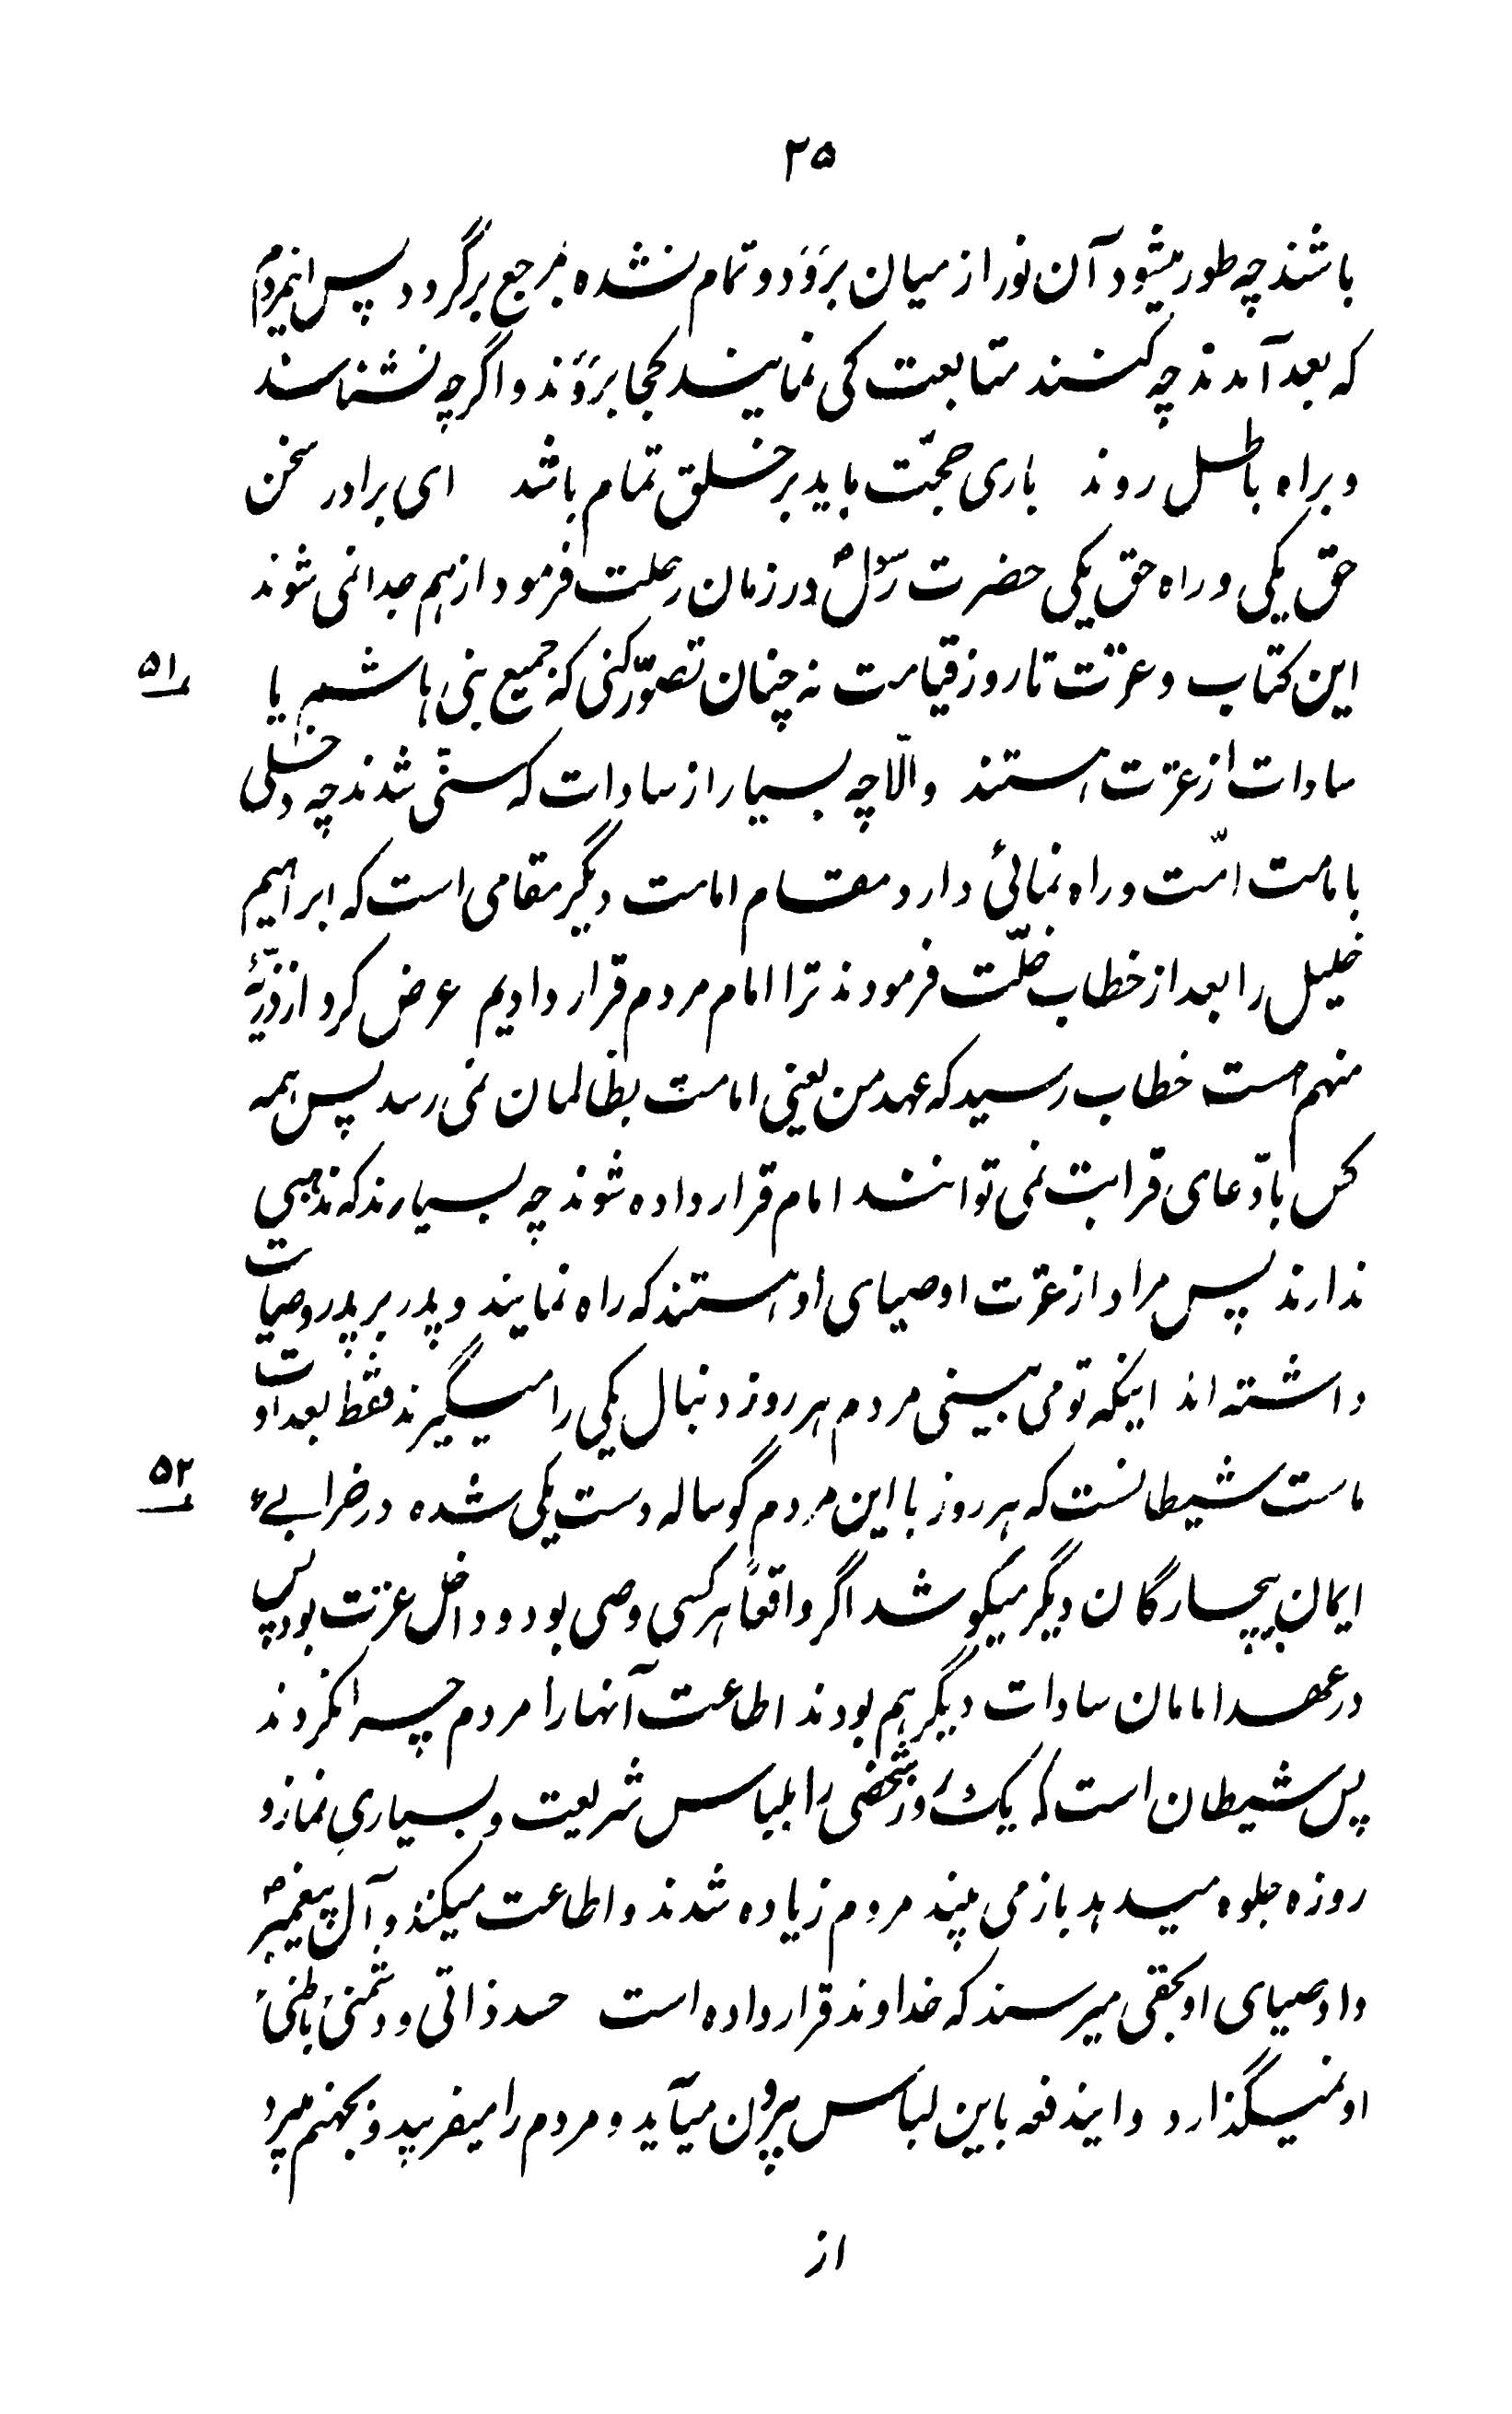 ۲۵
باشند چه طور میشود آن نور از میان بروَد و تمام نشده مرجع برگردد پس اینمردم
که بعد آمدند چه کنند متابعت کی نمایند کجا بروَند و اگر چه نشناسند
و براه باطل روند باری حجّت باید بر خلق تمام باشد ای برادر سخن
حق یکی و راه حق یکی حضرت رسول ص در زمان رحلت فرمود از هم جدا نمی شوند
این کتاب و عترت تا روز قیامت نه چنان تصوّر کنی که جمیع بنی هاشم یا
۵۱
سادات از عترت هستند والّا چه بسیار از سادات که سنّی شدند چه دخلی
بامامت امّت و راه نمائی دارد مقام امامت دیگر مقامی است که ابراهیم
خلیل را بعد از خطاب خلّت فرمودند ترا امام مردم قرار دادیم عرض کرد از ذرّیّهٔ
منهم هست خطاب رسید که عهد من یعنی امامت بظالمان نمی رسد پس همه
کس بادّعای قرابت نمی توانند امام قرار داده شوند چه بسیارند که مذهبی
ندارند پس مراد از عترت اوصیای او هستند که راه نمایند و پدر بر پدر وصیات
داشته اند اینکه تو می بینی مردم هر روز دنبال یکی را میگیرند فقط بعداوت
ماست شیطانست که هر روز با این مردم گوساله دست یکی شده در خرابیء
۵۲
ایمان بیچارگان دیگر میکوشد اگر واقعاً هر کسی وصی بود و داخل عترت بود پس
در عهد امامان سادات دیگر هم بودند اطاعت آنها را مردم چرا نکردند
پس شیطان است که یک روز شخصی را بلباس شریعت و بسیاری نماز و
روزه جلوه میدهد باز می بیند مردم زیاده شدند و اطاعت میکنند و آل پیغمبر ص
و اوصیای او بحقی میرسند که خداوند قرار داده است حسد ذاتی و دشمنیٔ باطنیٔ
او نمیگذارد و ایندفعه باین لباس بیرون میآید و مردم را میفریبد و بجهنم میبرد
از